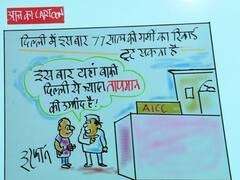 आज का CARTOON
दिल्ली में इस बार 77 साल की गर्मी का रिकार्ड
टूट सकता है
इस बार यहां बाकी
दिल्ली से ज्यादा तापमान
की उम्मीद है!
AICC
इरफान